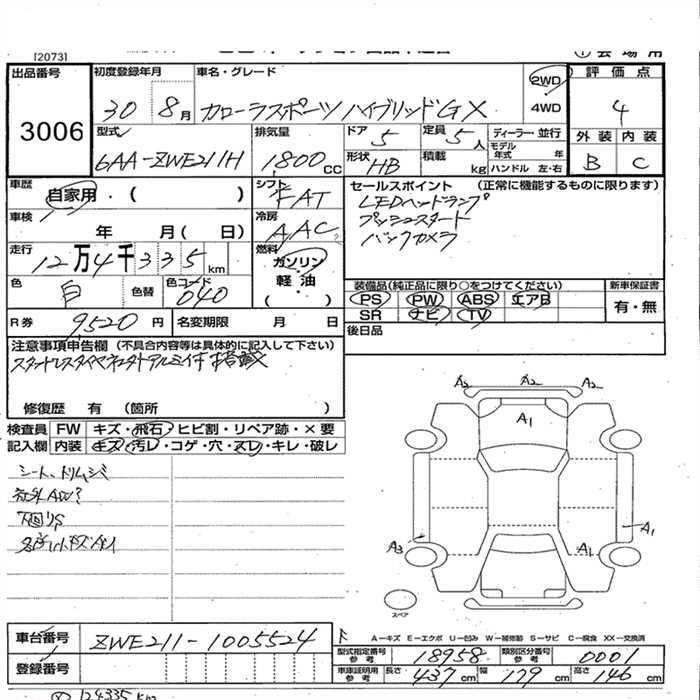 [2073]
出品番号 初度登録年月 車名・グレード 2WD 評価点
3006 30 8月 カローラスポーツ ハイブリッドGX 4WD 4
型式 排気量 ドア 5 定員 5人 ディーラー・並行 外装 内装
6AA-ZWE211H 1800cc 形状 HB 積載 kg モデル年式 年 ハンドル 左・右 B C
車歴 自家用・( ) シフト FAT セールスポイント (正常に機能するものに限ります)
車検 年 月( 日) 冷房 AAC LEDヘッドランプ
プッシュスタート
バックカメラ
走行 12万4千335km 燃料 ガソリン 軽油 ( )
色 白 色替 色コード 040 装備品(純正品に限り○をつけてください) 新車保証書
PS PW ABS エアB 有・無
SR ナビ TV
R券 9520円 名変期限 月 日 後日品
注意事項申告欄 (不具合内容等は具体的に記入して下さい)
修復歴 有 (箇所 )
検査員 FW キズ・飛石・ヒビ割・リペア跡・×要
記入欄 内装 キズ・汚レ・コゲ・穴・スレ・キレ・破レ
シート、トリムシミ
社外AW?
下回りS
A2 A2 A2
A1
A3 A1 A1
スペア
A-キズ E-エクボ U-凹み W-補修跡 S-サビ C-腐食 XX-交換済
車台番号 ZWE211-1005524
型式指定番号 参考 18958 類別区分番号 参考 0001
登録番号 車庫証明用 参考 長さ 437cm 幅 179cm 高さ 146cm
124335km